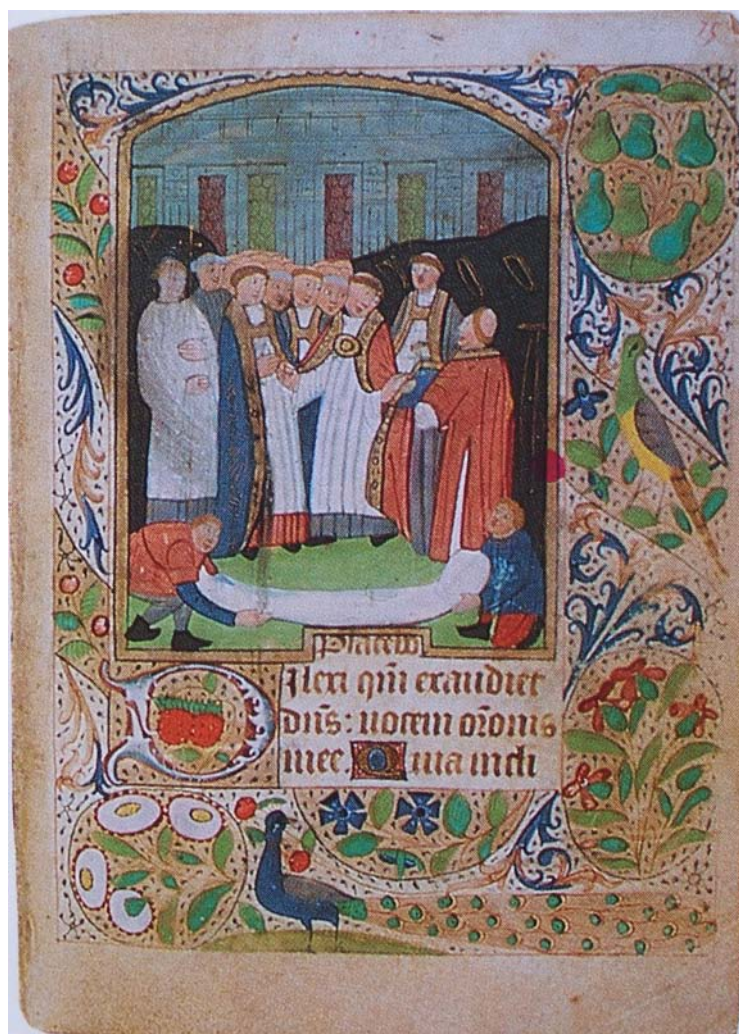 75
Placebo
Dilexi qm̄ exaudiet
dn̄s: uocem or̄onis
mee. Quia incli